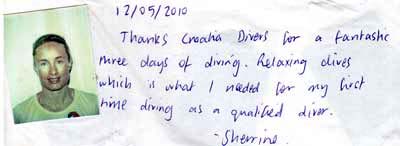 12/05/2010
Thanks Croatia Divers for a fantastic
three days of diving. Relaxing dives
which is what I needed for my first
time diving as a qualified diver.
- Sherrine.